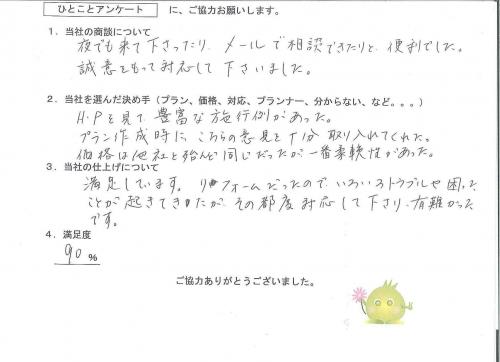 ひとことアンケート に、ご協力お願いします。
1．当社の商談について
夜でも来て下さったり、メールで相談できたりと、便利でした。
誠意をもって対応して下さいました。
2．当社を選んだ決め手（プラン、価格、対応、プランナー、分からない、など。。。）
H.Pを見て豊富な施行例があった。
プラン作成時に、こちらの意見を十分取り入れてくれた。
価格は他社と殆んど同じだったが一番柔軟性があった。
3．当社の仕上げについて
満足しています。リフォームだったので、いろいろトラブルや困った
ことが起きてきたが、その都度対応して下さり、有難かった
です。
4．満足度
90 %
ご協力ありがとうございました。